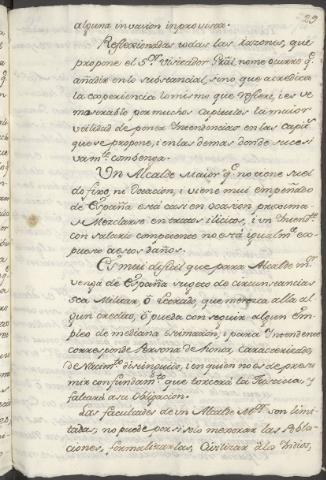 29
alguna invacion inprovissa.
Reflexionadas todas las razones, que
propone el Sr. Visitador Gral. no me ocurre q.e
añadir en lo substancial, sino que acredita
la experiencia lo mismo que refiere, i es ve
mosorable por muchos capitulos la maior
utilidad de poner Yntendencias en las Capit.s
que se propone, i en las demas donde sucesi
vam.te combenga.
Un Alcalde Maior q.e no tiene suel
do fixo, ni Dotacion, i viene mui empeñado
de España está casi en ocasion proxima
de Mezclarse en tratos ilicitos, i un Yntend.te
con salario competente no está igualm.te ex
puesto a estos daños.
Es mui dificil que para Alcalde m.or
venga de España sugeto de circunstancias
sea Militar, ó Letrado, que merezca allá al
gun credito, ó pueda conseguir algun Em
pleo de mediana estimacion; i para Yntendente
corresponde Persona de honor, caracterizada,
de Nacim.to distinguido, i en quien no es de presu
mir con fundam.to que torcerá la Justicia, y
faltará a su Obligacion.
Las facultades de un Alcalde M.or son limi
tadas; no puede por sí solo mejorar las Pobla
ciones, formalizarlas, Civilizar á los Yndios,